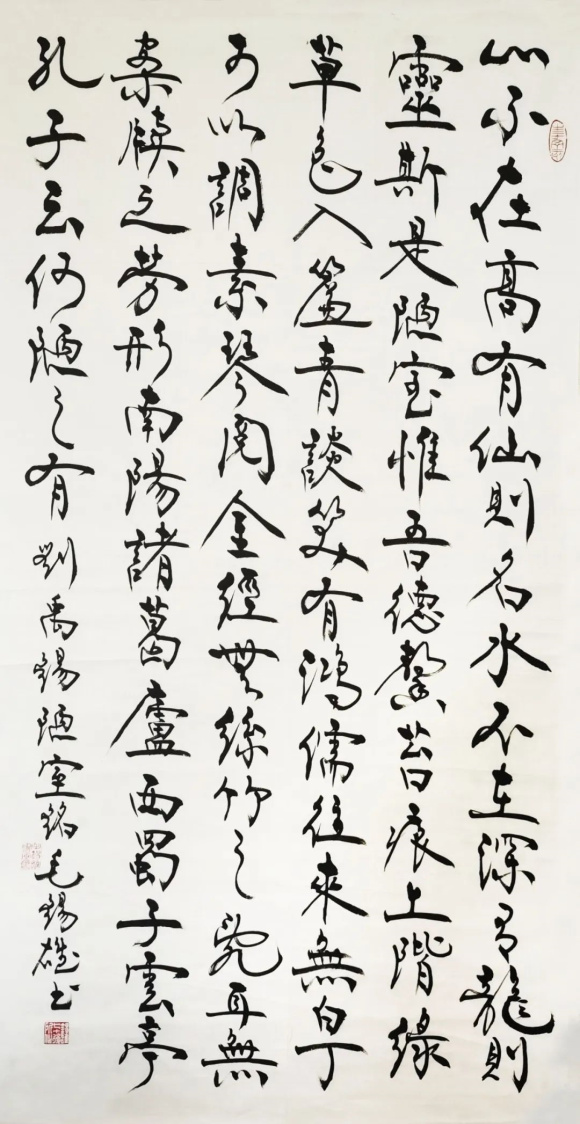 山不在高有仙則名水不在深有龍則
靈斯是陋室惟吾德馨苔痕上階綠
草色入簾青談笑有鴻儒往來無白丁
可以調素琴閱金經無絲竹之亂耳無
案牘之勞形南陽諸葛廬西蜀子雲亭
孔子云何陋之有劉禹錫陋室銘毛錫雄书